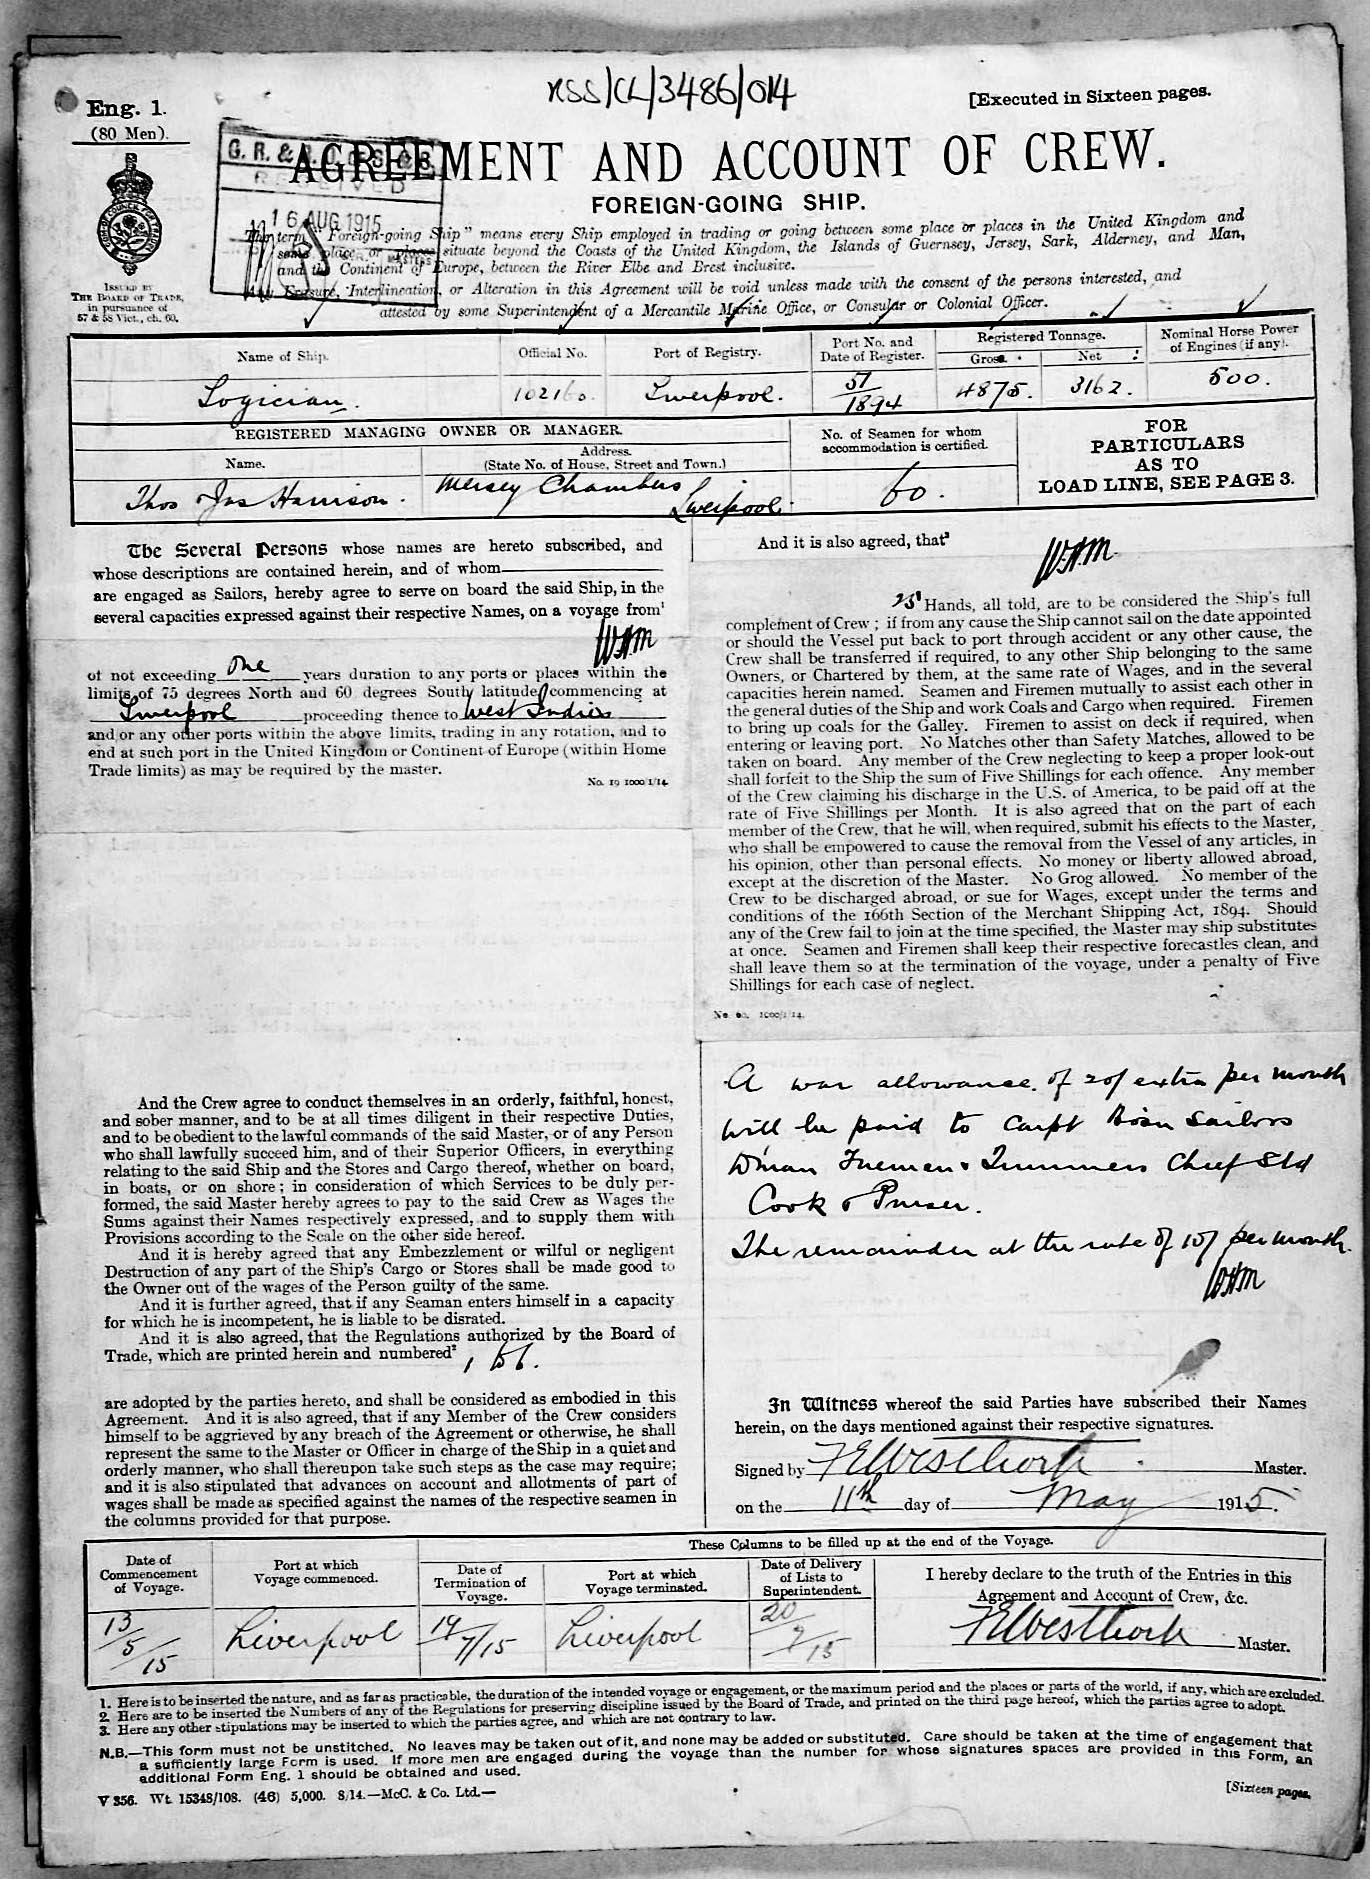 RSS/CL/3486/014
Eng. 1.
(80 Men).
[Executed in Sixteen pages.
G. R. &
RECEIVED
16 AUG 1915
AGREEMENT AND ACCOUNT OF CREW.
FOREIGN-GOING SHIP.
ISSUED BY
THE BOARD OF TRADE,
in pursuance of
57 & 58 Vict., ch. 60.
The term "Foreign-going Ship" means every Ship employed in trading or going between some place or places in the United Kingdom and
some place or places situate beyond the Coasts of the United Kingdom, the Islands of Guernsey, Jersey, Sark, Alderney, and Man,
and the Continent of Europe, between the River Elbe and Brest inclusive.
Any Erasure, Interlineation, or Alteration in this Agreement will be void unless made with the consent of the persons interested, and
attested by some Superintendent of a Mercantile Marine Office, or Consular or Colonial Officer.
Name of Ship. Official No. Port of Registry. Port No. and Date of Register. Registered Tonnage. Gross. Net Nominal Horse Power of Engines (if any).
Logician. 102160. Liverpool. 51/1894 4875. 3162. 500.
REGISTERED MANAGING OWNER OR MANAGER.
Name. Address. (State No. of House, Street and Town.)
No. of Seamen for whom accommodation is certified.
FOR
PARTICULARS
AS TO
LOAD LINE, SEE PAGE 3.
Thos Jas Harrison. Mersey Chambers Liverpool. 60.
The Several Persons whose names are hereto subscribed, and
whose descriptions are contained herein, and of whom
are engaged as Sailors, hereby agree to serve on board the said Ship, in the
several capacities expressed against their respective Names, on a voyage from¹
WHM
of not exceeding one years duration to any ports or places within the
limits of 75 degrees North and 60 degrees South latitude, commencing at
Liverpool proceeding thence to West Indies
and or any other ports within the above limits, trading in any rotation, and to
end at such port in the United Kingdom or Continent of Europe (within Home
Trade limits) as may be required by the master.
No. 19 1000 1/14
And the Crew agree to conduct themselves in an orderly, faithful, honest,
and sober manner, and to be at all times diligent in their respective Duties,
and to be obedient to the lawful commands of the said Master, or of any Person
who shall lawfully succeed him, and of their Superior Officers, in everything
relating to the said Ship and the Stores and Cargo thereof, whether on board,
in boats, or on shore; in consideration of which Services to be duly per-
formed, the said Master hereby agrees to pay to the said Crew as Wages the
Sums against their Names respectively expressed, and to supply them with
Provisions according to the Scale on the other side hereof.
And it is hereby agreed that any Embezzlement or wilful or negligent
Destruction of any part of the Ship's Cargo or Stores shall be made good to
the Owner out of the wages of the Person guilty of the same.
And it is further agreed, that if any Seaman enters himself in a capacity
for which he is incompetent, he is liable to be disrated.
And it is also agreed, that the Regulations authorized by the Board of
Trade, which are printed herein and numbered²
1 to 6.
are adopted by the parties hereto, and shall be considered as embodied in this
Agreement. And it is also agreed, that if any Member of the Crew considers
himself to be aggrieved by any breach of the Agreement or otherwise, he shall
represent the same to the Master or Officer in charge of the Ship in a quiet and
orderly manner, who shall thereupon take such steps as the case may require;
and it is also stipulated that advances on account and allotments of part of
wages shall be made as specified against the names of the respective seamen in
the columns provided for that purpose.
And it is also agreed, that³
WHM
25 Hands, all told, are to be considered the Ship's full
complement of Crew; if from any cause the Ship cannot sail on the date appointed
or should the Vessel put back to port through accident or any other cause, the
Crew shall be transferred if required, to any other Ship belonging to the same
Owners, or Chartered by them, at the same rate of Wages, and in the several
capacities herein named. Seamen and Firemen mutually to assist each other in
the general duties of the Ship and work Coals and Cargo when required. Firemen
to bring up coals for the Galley. Firemen to assist on deck if required, when
entering or leaving port. No Matches other than Safety Matches, allowed to be
taken on board. Any member of the Crew neglecting to keep a proper look-out
shall forfeit to the Ship the sum of Five Shillings for each offence. Any member
of the Crew claiming his discharge in the U.S. of America, to be paid off at the
rate of Five Shillings per Month. It is also agreed that on the part of each
member of the Crew, that he will, when required, submit his effects to the Master,
who shall be empowered to cause the removal from the Vessel of any articles, in
his opinion, other than personal effects. No money or liberty allowed abroad,
except at the discretion of the Master. No Grog allowed. No member of the
Crew to be discharged abroad, or sue for Wages, except under the terms and
conditions of the 166th Section of the Merchant Shipping Act, 1894. Should
any of the Crew fail to join at the time specified, the Master may ship substitutes
at once. Seamen and Firemen shall keep their respective forecastles clean, and
shall leave them so at the termination of the voyage, under a penalty of Five
Shillings for each case of neglect.
No. 60. 1000/1/14.
A war allowance of 20/ extra per month
will be paid to Carpt Bosn Sailors
D'man Firemen & Trimmers Chief Std
Cook & Purser.
The remainder at the rate of 10/ per month.
WHM
In Witness whereof the said Parties have subscribed their Names
herein, on the days mentioned against their respective signatures.
Signed by Master.
on the 11th day of May 1915.
These Columns to be filled up at the end of the Voyage.
Date of Commencement of Voyage. Port at which Voyage commenced. Date of Termination of Voyage. Port at which Voyage terminated. Date of Delivery of Lists to Superintendent.
I hereby declare to the truth of the Entries in this
Agreement and Account of Crew, &c.
13/5/15 Liverpool 19/7/15 Liverpool 20/7/15 Master.
1. Here is to be inserted the nature, and as far as practicable, the duration of the intended voyage or engagement, or the maximum period and the places or parts of the world, if any, which are excluded.
2. Here are to be inserted the Numbers of any of the Regulations for preserving discipline issued by the Board of Trade, and printed on the third page hereof, which the parties agree to adopt.
3. Here any other stipulations may be inserted to which the parties agree, and which are not contrary to law.
N.B.—This form must not be unstitched. No leaves may be taken out of it, and none may be added or substituted. Care should be taken at the time of engagement that
a sufficiently large Form is used. If more men are engaged during the voyage than the number for whose signatures spaces are provided in this Form, an
additional Form Eng. 1 should be obtained and used.
V 356. Wt. 15348/108. (46) 5,000. 8/14.—McC. & Co. Ltd.—
[Sixteen pages.